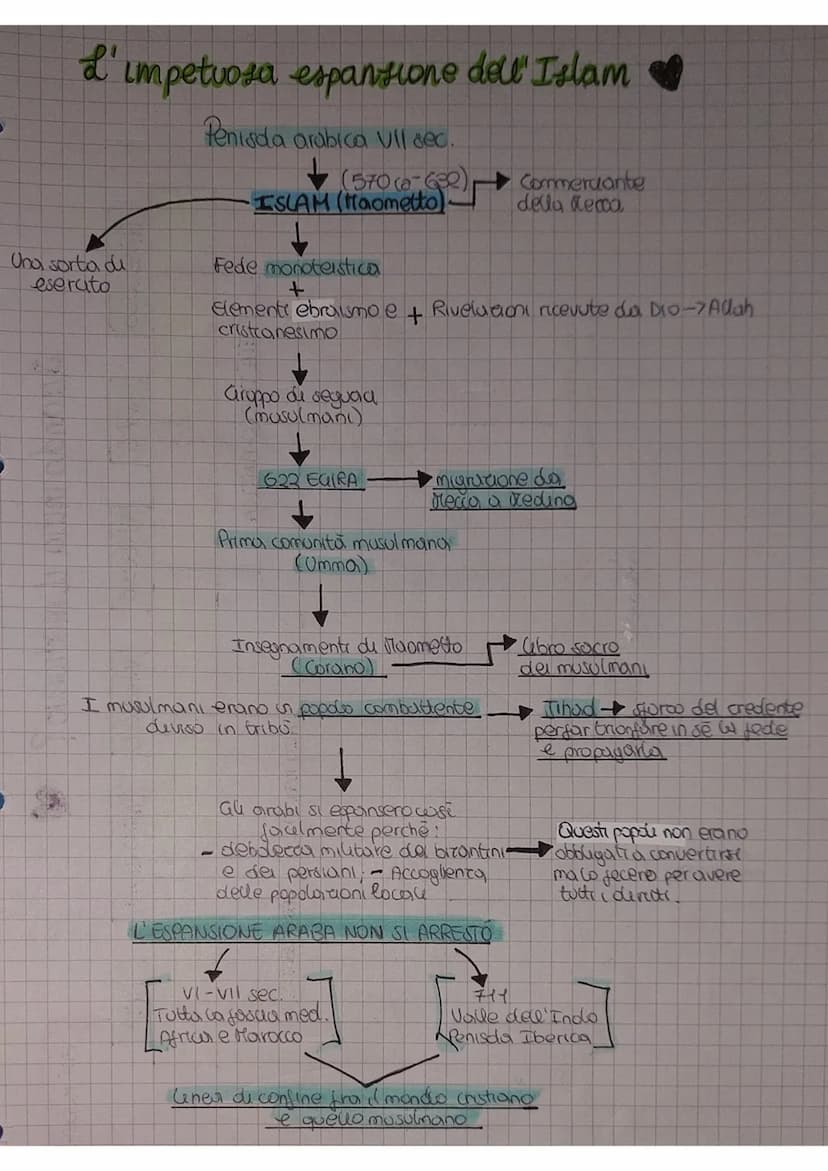 L'impetuosa espansione dell'Islam
Penisola arabica VII sec.
(570 ca-632)
ISLAM (Maometto)
Commerciante
della Mecca
Una sorta di
esercito
Fede monoteistica
+
Elementi ebraismo e + Rivelazioni ricevute da DIO → Allah
cristianesimo
Gruppo di seguaci
(musulmani)
622 EGIRA
migrazione da
Mecca a Medina
Prima comunità musulmana
(Umma)
Insegnamenti di Maometto
(Corano)
Libro sacro
dei musulmani
I musulmani erano un popolo combattente
diviso in tribù
Jihad → sforzo del credente
per far trionfare in sé la fede
e propagarla
Gli arabi si espansero così
facilmente perché:
- debolezza militare dei bizantini
e dei persiani; - Accoglienza
delle popolazioni locali
Questi popoli non erano
obbligati a convertirsi
ma lo fecero per avere
tutti i diritti.
L'ESPANSIONE ARABA NON SI ARRESTÒ
VI-VII sec.
Tutta la fascia med.
Africa e Marocco
711
Valle dell'Indo
Penisola Iberica
Linea di confine fra il mondo cristiano
e quello musulmano